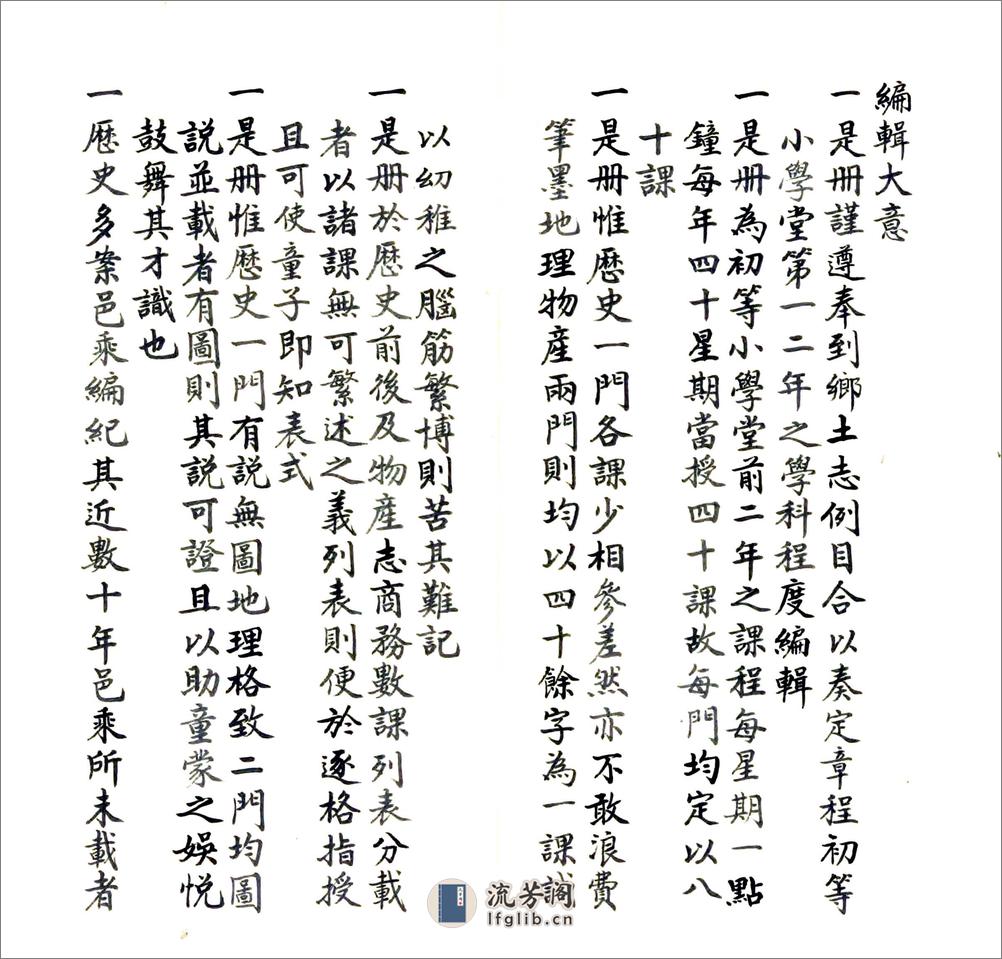 編輯大意
一是册謹遵奉到鄉土志例目合以奏定章程初等
小學堂第一二年之學科程度編輯
一是册為初等小學堂前二年之課程每星期一點
鐘每年四十星期當授四十課故每門均定以八
十課
一是册惟歷史一門各課少相參差然亦不敢浪費
筆墨地理物產兩門則均以四十餘字為一課誠
以幼稚之腦筋繁博則苦其難記
一是册於歷史前後及物產志商務數課列表分載
者以諸課無可繁述之義列表則便於逐格指授
且可使童子即知表式
一是册惟歷史一門有説無圖地理格致二門均圖
説並載者有圖則其説可證且以助童蒙之娛悦
鼓舞其才識也
一歷史多案邑乘編紀其近數十年邑乘所未載者
流芳閣
lfglib.cn